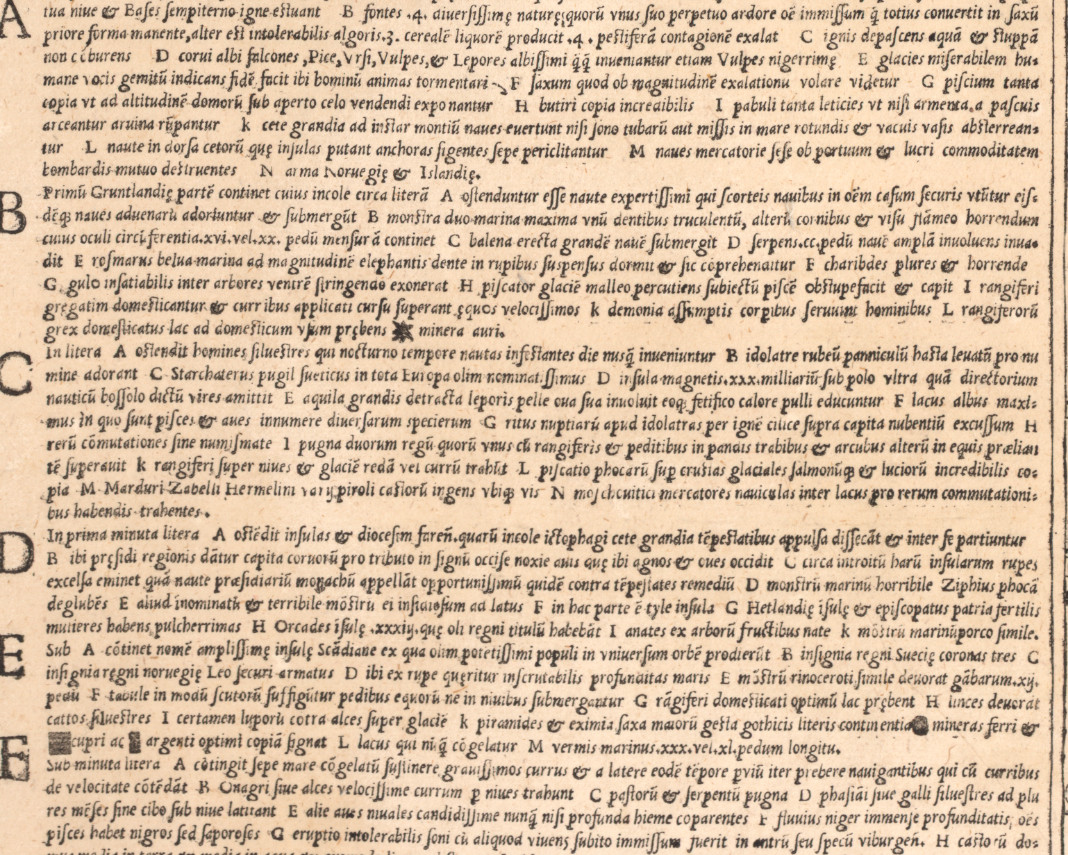 A tua niue & Bases sempiterno igne estuant B fontes .4. diuersissimę naturę,quorū vnus suo perpetuo ardore oē immissum q̄ totius conuertit in saxū
priore forma manente,alter est intolerabilis algoris.3. cerealē liquorē producit .4. pestiferā contagionē exalat C ignis depascens aquā & stuppā
non cōburens D corui albi falcones,Pice,Vrsi,Vulpes,& Lepores albissimi q̄q̄ inueniantur etiam Vulpes nigerrimę E glacies miserabilem hu-
mane vocis gemitū indicans fidē facit ibi hominū animas tormentari F saxum quod ob magnitudinē exalationū volare videtur G piscium tanta
copia vt ad altitudinē domorū sub aperto celo vendendi exponantur H butiri copia increaibilis I pabuli tanta leticies vt nisi armenta a pascuis
arceantur aruina rūpantur k cete grandia ad instar montiū naues euertunt nisi sono tubarū aut missis in mare rotundis & vacuis vasis absterrean-
tur L naute in dorsa cetorū quę insulas putant anchoras figentes sepe periclitantur M naues mercatorie sese ob portuum & lucri commoditatem
bombardis mutuo destruentes N arma Noruegię & Islandię.
B Primū Gruntlandię partē continet cuius incole circa literā A ostenduntur esse naute expertissimi qui scorteis nauibus in oēm casum securis vtūtur eis-
dēq; naues aduenarū adoriuntur & submergūt B monstra duo marina maxima vnū dentibus truculentū, alterū cornibus & visu flāmeo horrendum
cuius oculi circūferentia.xvi.vel.xx. pedū mensurā continet C balena erecta grandē nauē submergit D serpens.cc.pedū nauē amplā inuoluens inua-
dit E rosmarus belua marina ad magnitudinē elephantis dente in rupibus suspensus dormit & sic cōprehenditur F charibdes plures & horrende
G gulo insatiabilis inter arbores ventrē stringendo exonerat H piscator glaciē malleo percutiens subiectū piscē obstupefacit & capit I rangiferi
gregatim domesticantur & curribus applicati cursu superant equos velocissimos k demonia assumptis corpibus seruunt hominibus L rangiferorū
grex domesticatus lac ad domesticum vsum prębens minera auri.
C In litera A ostendit homines siluestres qui nocturno tempore nautas infestantes die nusq̄ inueniuntur B idolatre rubeū panniculū hasta leuatū pro nu
mine adorant C Starchaterus pugil sueticus in tota Europa olim nominatissimus D insula magnetis.xxx.milliariū sub polo vltra quā directorium
nauticū bossolo dictū vires amittit E aquila grandis detracta leporis pelle oua sua inuoluit eoq; fetifico calore pulli educuntur F lacus albus maxi-
mus in quo sunt pisces & aues innumere diuersarum specierum G ritus nuptiarū apud idolatras per ignē cilice supra capita nubentiū excussum H
rerū cōmutationes sine numismate I pugna duorum regū quorū vnus cū rangiferis & peditibus in pandis trabibus & arcubus alterū in equis prælian
tē superauit k rangiferi super niues & glaciē redā vel currū trahūt L piscatio phocarū sup crustas glaciales salmonūq; & luciorū incredibilis co-
pia M Marduri Zabelli Hermelini varij piroli castorū ingens vbiq; vis N moscheuitici mercatores nauiculas inter lacus pro rerum commutationi-
bus habendis trahentes.
D In prima minuta litera A ostēdit insulas & diocesim fareñ.quarū incole ictophagi cete grandia tēpestatibus appulsa dissecāt & inter se partiuntur
B ibi pręsidi regionis dātur capita coruorū pro tributo in signū occise noxie auis que ibi agnos & oues occidit C circa introitū harū insularum rupes
excelsa eminet quā naute præsidiariū monachū appellāt opportunissimū quidē contra tēpestates remediū D monstrū marinū horribile Ziphius phocā
deglubēs E aliud inominatū & terribile mōstrū ei insidiosum ad latus F in hac parte ē tyle insula G Hetlandię īsulę & episcopatus patria fertilis
mulieres habens pulcherrimas H Orcades īsulę .xxxiij.quę olī regni titulū habebāt I anates ex arborū fructibus nate k mōstrū marinū porco simile.
E Sub A cōtinet nomē amplissimę insulę Scādiane ex qua olim potētissimi populi in vniuersum orbē prodierūt B insignia regni Suecię coronas tres C
insignia regni noruegię Leo securi armatus D ibi ex rupe quęritur inscrutabilis profunditas maris E mōstrū rinoceroti simile deuorat gābarum.xij.
pedū F tabule in modū scutorū suffigūtur pedibus equorū ne in niuibus submergantur G rāgiferi domesticati optimū lac prębent H linces deuorāt
cattos siluestres I certamen luporū cōtra alces super glaciē k piramides & eximia saxa maiorū gesta gothicis literis continentia mineras ferri &
cupri ac argenti optimi copiā signat L lacus qui nūq̄ cōgelatur M vermis marinus.xxx.vel.xl.pedum longitu.
F Sub minuta litera A cōtingit sepe mare cōgelatū sustinere grauissimos currus & a latere eodē tēpore pviū iter prebere nauigantibus qui cū curribus
de velocitate cōtēdāt B Onagri siue alces velocissime currum p niues trahunt C pastorū & serpentū pugna D phasiāi siue galli siluestres ad plu
res mēses sine cibo sub niue latitant E alie aues niuales candidissime nunq̄ nisi profunda hieme coparentes F fluuius niger immense profunditatis, oēs
pisces habet nigros sed saporosos G eruptio intolerabilis soni cū aliquod viuens subito immissum fuerit in antrū seu specū viburgeñ. H castorū do-